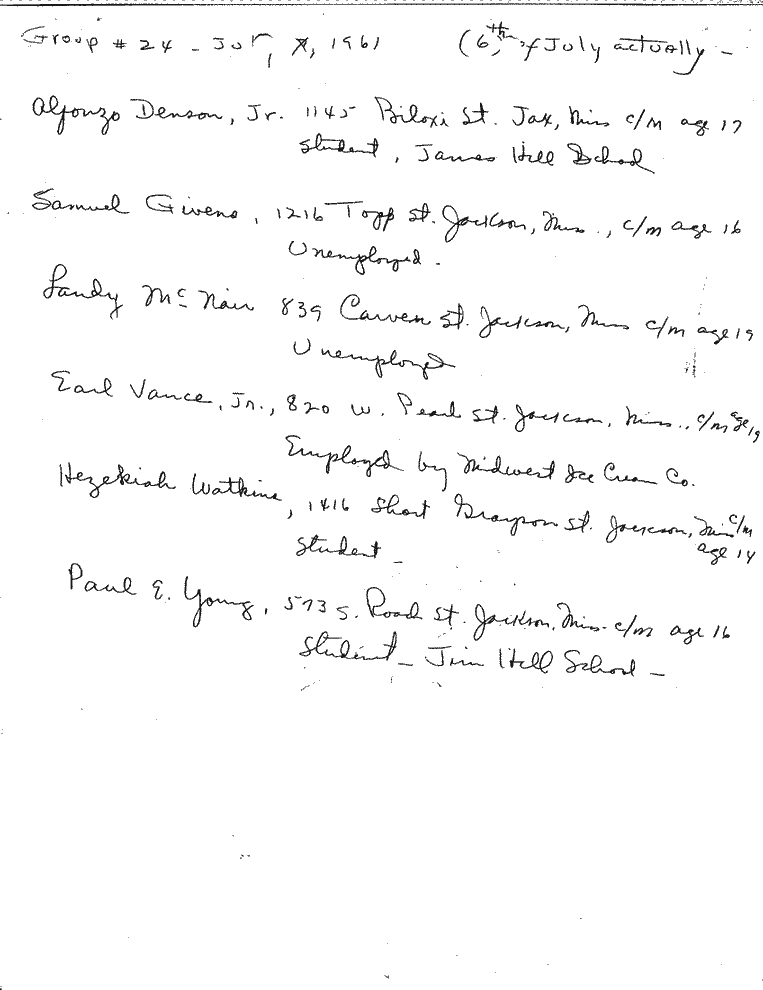 Group # 24 - July 7, 1961 (6th of July actually -
Alfonzo Denson, Jr. 1145 Biloxi St. Jax, Miss c/m age 17
Student, James Hill School
Samuel Givens, 1216 Topp St. Jackson, Miss., c/m age 16
Unemployed.
Landy McNair 839 Carver St. Jackson, Miss c/m age 19
Unemployed
Earl Vance, Jr., 820 W. Pearl St. Jackson, Miss., c/m age 19
Employed by Midwest Ice Cream Co.
Hezekiah Watkins, 1416 Short Grayson St. Jackson, Miss c/m
age 14
Student -
Paul E. Young, 573 S. Road St. Jackson, Miss. c/m age 16
Student - Jim Hill School -